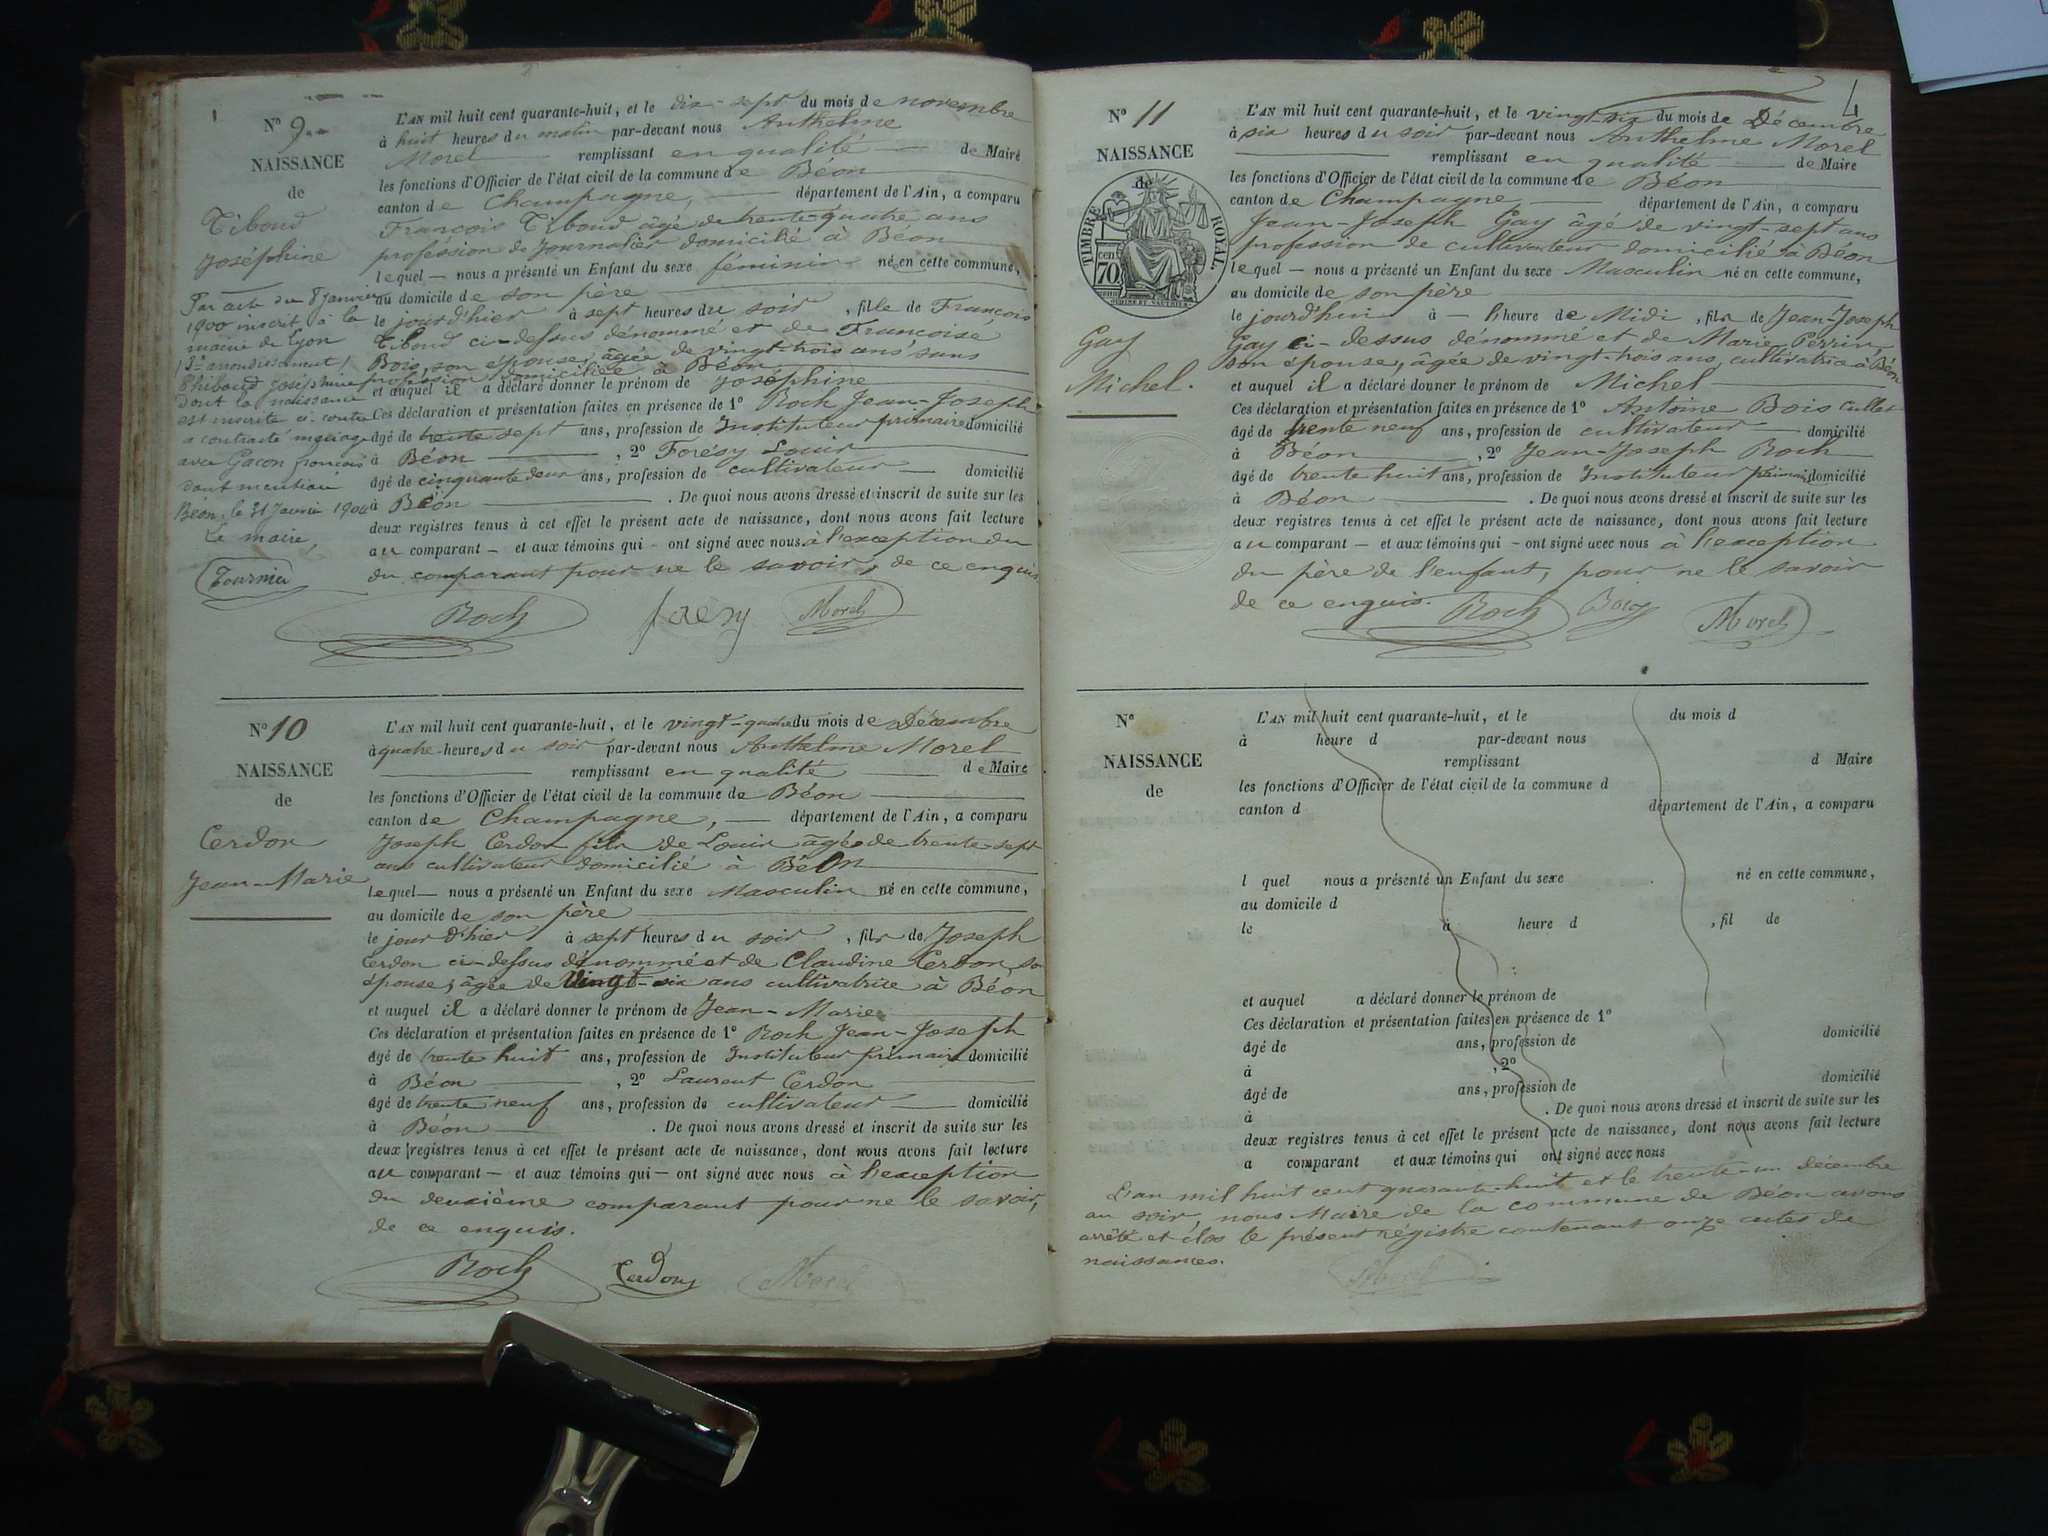 Nº 9
NAISSANCE
de
Tiboud
Joséphine
Par acte du 8 janvier
1900 inscrit à la
mairie de Lyon
arrondissement
Thiboud Joséphine
dont la naissance
est inscrite ci-contre
a contracté mariage
avec Gacon françois
dont mention
Béon, le 31 Janvier 1900
Le maire,
Tournier
L'AN mil huit cent quarante-huit, et le dix-sept du mois de novembre
à huit heures du matin par-devant nous Anthelme
Morel remplissant en qualité de Maire
les fonctions d'Officier de l'état civil de la commune de Béon
canton de Champagne, département de l'Ain, a comparu
François Tiboud âgé de trente-quatre ans
profession de Journalier domicilié à Béon
lequel — nous a présenté un Enfant du sexe féminin né en cette commune,
au domicile de son père
le jourd'hier à sept heures du soir, fille de François
Tiboud ci-dessus dénommé et de Françoise
Bois, son épouse, âgée de vingt-trois ans, sans
profession domiciliée à Béon
et auquel il a déclaré donner le prénom de Joséphine
Ces déclaration et présentation faites en présence de 1º Roch Jean-Joseph
âgé de trente sept ans, profession de Instituteur primaire domicilié
à Béon, 2º Forésy Louis
âgé de cinquante deux ans, profession de cultivateur domicilié
à Béon. De quoi nous avons dressé et inscrit de suite sur les
deux registres tenus à cet effet le présent acte de naissance, dont nous avons fait lecture
au comparant — et aux témoins qui — ont signé avec nous à l'exception du
du comparant pour ne le savoir, de ce enquis
Roch foresy Morel
Nº 10
NAISSANCE
de
Cerdon
Jean-Marie
L'AN mil huit cent quarante-huit, et le vingt-quatre du mois de Décembre
à quatre heures du soir par-devant nous Anthelme Morel
remplissant en qualité de Maire
les fonctions d'Officier de l'état civil de la commune de Béon
canton de Champagne, département de l'Ain, a comparu
Joseph Cerdon fils de Louis âgée de trente-sept
ans cultivateur domicilié à Béon
lequel — nous a présenté un Enfant du sexe Masculin né en cette commune,
au domicile de son père
le jour d'hier à sept heures du soir, fils de Joseph
Cerdon ci-dessus dénommé et de Claudine Cerdon, son
épouse, âgée de Vingt-six ans cultivatrice à Béon
et auquel il a déclaré donner le prénom de Jean-Marie
Ces déclaration et présentation faites en présence de 1º Roch Jean-Joseph
âgé de trente huit ans, profession de Instituteur primaire domicilié
à Béon, 2º Laurent Cerdon
âgé de trente neuf ans, profession de cultivateur domicilié
à Béon. De quoi nous avons dressé et inscrit de suite sur les
deux registres tenus à cet effet le présent acte de naissance, dont nous avons fait lecture
au comparant — et aux témoins qui — ont signé avec nous à l'exception
du deuxième comparant pour ne le savoir,
de ce enquis.
Roch Cerdon Morel
4
Nº 11
NAISSANCE
de
TIMBRE ROYAL
70
Gay
Michel.
L'AN mil huit cent quarante-huit, et le vingt-six du mois de Décembre
à six heures du soir par-devant nous Anthelme Morel
remplissant en qualité de Maire
les fonctions d'Officier de l'état civil de la commune de Béon
canton de Champagne, département de l'Ain, a comparu
Jean-Joseph Gay âgé de vingt-sept ans
profession de cultivateur domicilié à Béon
lequel — nous a présenté un Enfant du sexe Masculin né en cette commune,
au domicile de son père
le jourd'hui à — l'heure de Midi, fils de Jean-Joseph
Gay ci-dessus dénommé et de Marie Perrin,
son épouse, âgée de vingt-trois ans, cultivatrice à Béon
et auquel il a déclaré donner le prénom de Michel
Ces déclaration et présentation faites en présence de 1º Antoine Bois
âgé de trente neuf ans, profession de cultivateur domicilié
à Béon, 2º Jean-Joseph Roch
âgé de trente huit ans, profession de Instituteur primaire domicilié
à Béon. De quoi nous avons dressé et inscrit de suite sur les
deux registres tenus à cet effet le présent acte de naissance, dont nous avons fait lecture
au comparant — et aux témoins qui — ont signé avec nous à l'exception
du père de l'enfant, pour ne le savoir
de ce enquis. Roch Bois Morel
Nº
NAISSANCE
de
L'AN mil huit cent quarante-huit, et le du mois d
à heure d par-devant nous
remplissant d Maire
les fonctions d'Officier de l'état civil de la commune d
canton d département de l'Ain, a comparu
l quel nous a présenté un Enfant du sexe né en cette commune,
au domicile d
le à heure d , fil de
et auquel a déclaré donner le prénom de
Ces déclaration et présentation faites en présence de 1º
âgé de ans, profession de domicilié
à , 2º
âgé de ans, profession de domicilié
à . De quoi nous avons dressé et inscrit de suite sur les
deux registres tenus à cet effet le présent acte de naissance, dont nous avons fait lecture
a comparant et aux témoins qui ont signé avec nous
L'an mil huit cent quarante-huit et le trente-un décembre
au soir, nous Maire de la commune de Béon avons
arrêté et clos le présent régistre contenant onze actes de
naissances.
Morel